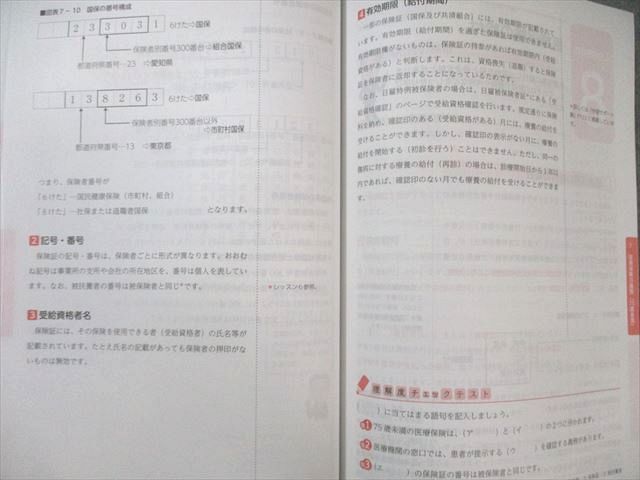 ■図表7－10 国保の番号構成
2 3 3 0 3 1 6けた⇨国保
保険者別番号300番台⇨組合国保
都道府県番号…23 ⇨愛知県
1 3 8 2 6 3 6けた⇨国保
保険者別番号300番台以外
⇨市町村国保
都道府県番号…13 ⇨東京都
つまり、保険者番号が
「6けた」…国民健康保険（市町村、組合）
「8けた」…社保または退職者国保 となります。
2 記号・番号
保険証の記号・番号は、保険者ごとに形式が異なります。おおむ
ね記号は事業所の支所や会社の所在地区を、番号は個人を表してい
ます。なお、被扶養者の番号は被保険者と同じ*です。
*レッスン6参照。
3 受給資格者名
保険証には、その保険を使用できる者（受給資格者）の氏名等が
記載されています。たとえ氏名の記載があっても保険者の押印がな
いものは無効です。
4 有効期限（給付期間）
一部の保険証（国保及び共済組合）には、有効期限が記載されて
います。有効期限（給付期間）を過ぎた保険証は使用できません。
有効期限欄がないものは、保険証の持参があれば有効期限内（受給
資格がある）と判断します。これは、資格喪失（退職）すると保険
証を保険者に返却することになっているためです。
なお、日雇特例被保険者の場合は、日雇被保険者証*にある〔受
給資格確認〕のページで受給資格確認を行います。規定通りに保険
料を納め、確認印のある（受給資格がある）月には、療養の給付を
受けることができます。しかし、確認印の表示がない月に、療養の
給付を開始する（初診を行う）ことはできません。ただし、同一の
傷病に対する療養の給付（再診）の場合は、診療開始日から1年以
内であれば、確認印のない月でも療養の給付を受けることができま
す。
8
理解度チェックテスト
（ ）に当てはまる語句を記入しましょう。
1 75歳未満の医療保険は、（ア ）と（イ ）の2つに分かれます。
2 医療機関の窓口では、患者が提示する（ウ ）を確認する義務があります。
3（エ ）の保険証の番号は被保険者と同じです。